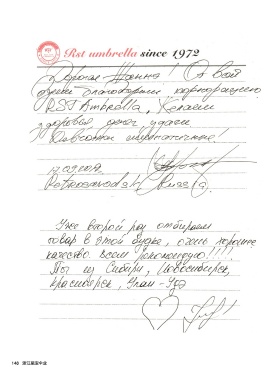 Rst umbrella since 1972
Дорогая Жанна! От всей
души благодарим корпорацию
RST Umbrella, Желаем
здоровья, удачи
Petrozavodsk Russia
Уже второй раз отбираем
товар в этой будке, очень хорошее
качество всем рекомендую!!!!
Мы из Сибири, Новосибирск,
Красноярск, Улан-Удэ
148